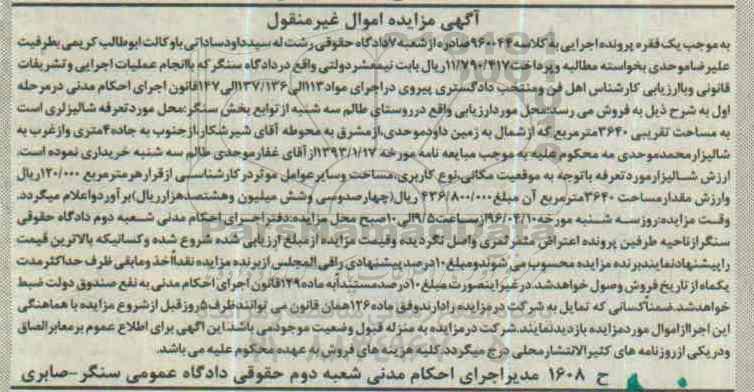 آگهی مزایده اموال غیرمنقول
به موجب یک فقره پرونده اجرایی به کلاسه ۹۶۰۰۴۴ صادره از شعبه ۷ دادگاه حقوقی رشت له سید داود ساداتی با وکالت ابوطالب کریمی بطرفیت
علیرضا موحدی بخواسته مطالبه و پرداخت ۱۱/۷۹۰/۴۱۷ ریال بابت نیمعشر دولتی واقع در دادگاه سنگر که با انجام عملیات اجرایی و تشریفات
قانونی و با ارزیابی کارشناس اهل فن و منتخب دادگستری پیروی در اجرای مواد ۱۱۳ الی ۱۳۶ و ۱۳۷ الی ۱۴۷ قانون اجرای احکام مدنی در مرحله
اول به شرح ذیل به فروش می رسد: محل مورد ارزیابی واقع در روستای طالم سه شنبه از توابع بخش سنگر: محل مورد تعرفه شالیزاری است
به مساحت تقریبی ۳۶۴۰ مترمربع که از شمال به زمین داود موحدی، از مشرق به محوطه آقای شیر شکار، از جنوب به جاده ۴ متری و از غرب به
شالیزار محمد موحدی مه محکوم علیه به موجب مبایعه نامه مورخه ۱۳۹۳/۱/۱۷ از آقای غفار موحدی طالم سه شنبه خریداری نموده است.
ارزش شالیزار مورد تعرفه با توجه به موقعیت مکانی، نوع کاربری، مساحت و سایر عوامل موثر در کارشناسی از قرار هر مترمربع ۱۲۰/۰۰۰ ریال
وارزش مقدار مساحت ۳۶۴۰ مترمربع آن مبلغ ۴۳۶/۸۰۰/۰۰۰ ریال (چهارصد و سی و شش میلیون و هشتصد هزار ریال) برآورد و اعلام میگردد.
وقت مزایده: روز سه شنبه مورخه ۹۶/۰۴/۱۰ از ساعت ۹/۵ الی ۱۰ صبح محل مزایده: دفتر اجرای احکام مدنی شعبه دوم دادگاه حقوقی
سنگر از ناحیه طرفین پرونده اعتراض مثمر ثمری واصل نگردیده و قیمت مزایده از مبلغ ارزیابی شده شروع شده و کسانیکه بالاترین قیمت
را پیشنهاد نمایند برنده مزایده محسوب می شوند و مبلغ ۱۰ درصد پیشنهادی را فی المجلس از برنده مزایده نقداً اخذ و مابقی ظرف حداکثر مدت
یکماه از تاریخ فروش وصول خواهد شد. در غیر اینصورت مبلغ ۱۰ درصد مستنداً به ماده ۱۲۹ قانون اجرای احکام مدنی به نفع صندوق دولت ضبط
خواهد شد. ضمناً کسانی که تمایل به شرکت در مزایده را دارند وفق ماده ۱۲۶ همان قانون می توانند ظرف ۵ روز قبل از شروع مزایده با هماهنگی
این اجرا از اموال مورد مزایده بازدید نمایند. شرکت در مزایده به منزله قبول وضعیت موجود می باشد. این آگهی برای اطلاع عموم بر معابر الصاق
و در یکی از روزنامه های کثیرالانتشار محلی درج میگردد. کلیه هزینه های فروش به عهده محکوم علیه می باشد.
ح ۱۶۰۸ مدیر اجرای احکام مدنی شعبه دوم حقوقی دادگاه عمومی سنگر-صابری